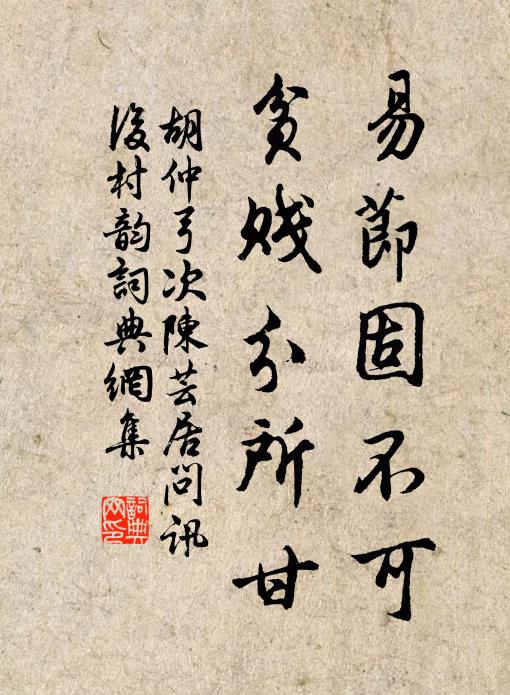 易節固不可
貧賤分所甘
胡仲弓次陳芸居問訊
後村韵詞典網集
詞典
网印